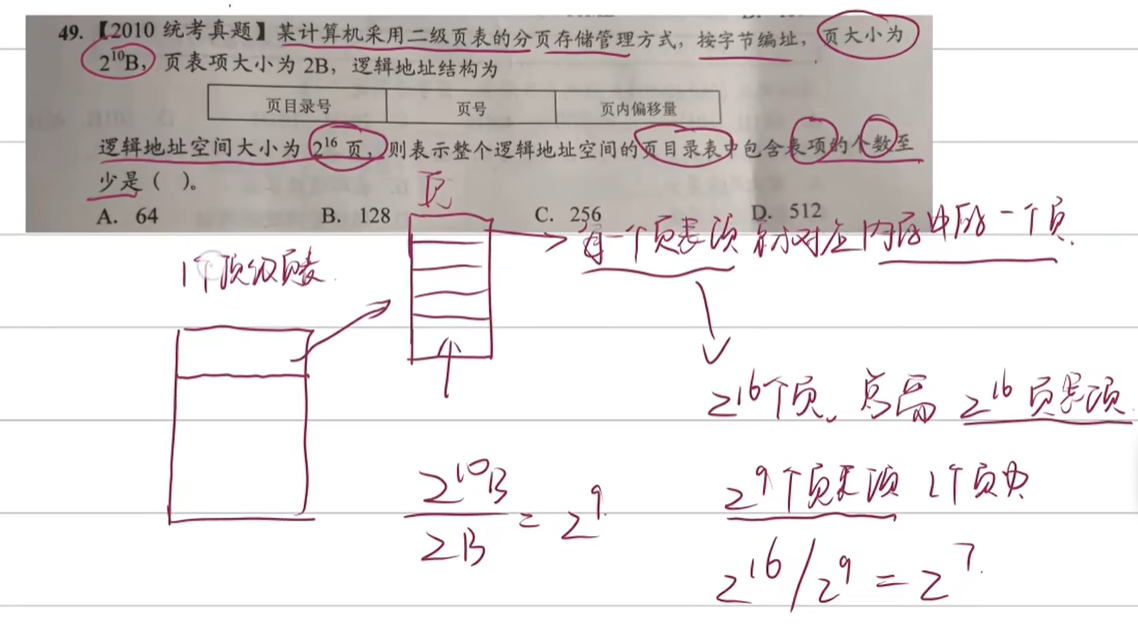 49. 【2010 统考真题】某计算机采用二级页表的分页存储管理方式，按字节编址，页大小为
2¹⁰B，页表项大小为 2B，逻辑地址结构为
页目录号 页号 页内偏移量
逻辑地址空间大小为 2¹⁶ 页，则表示整个逻辑地址空间的页目录表中包含表项的个数至
少是（ ）。
A. 64 B. 128 C. 256 D. 512
页
每一个页表项 对应内存中的一个页
1个顶级页表
2¹⁶个页、需 2¹⁶ 页表项
2¹⁰B / 2B = 2⁹
2⁹个页表项 1个页
2¹⁶/2⁹ = 2⁷